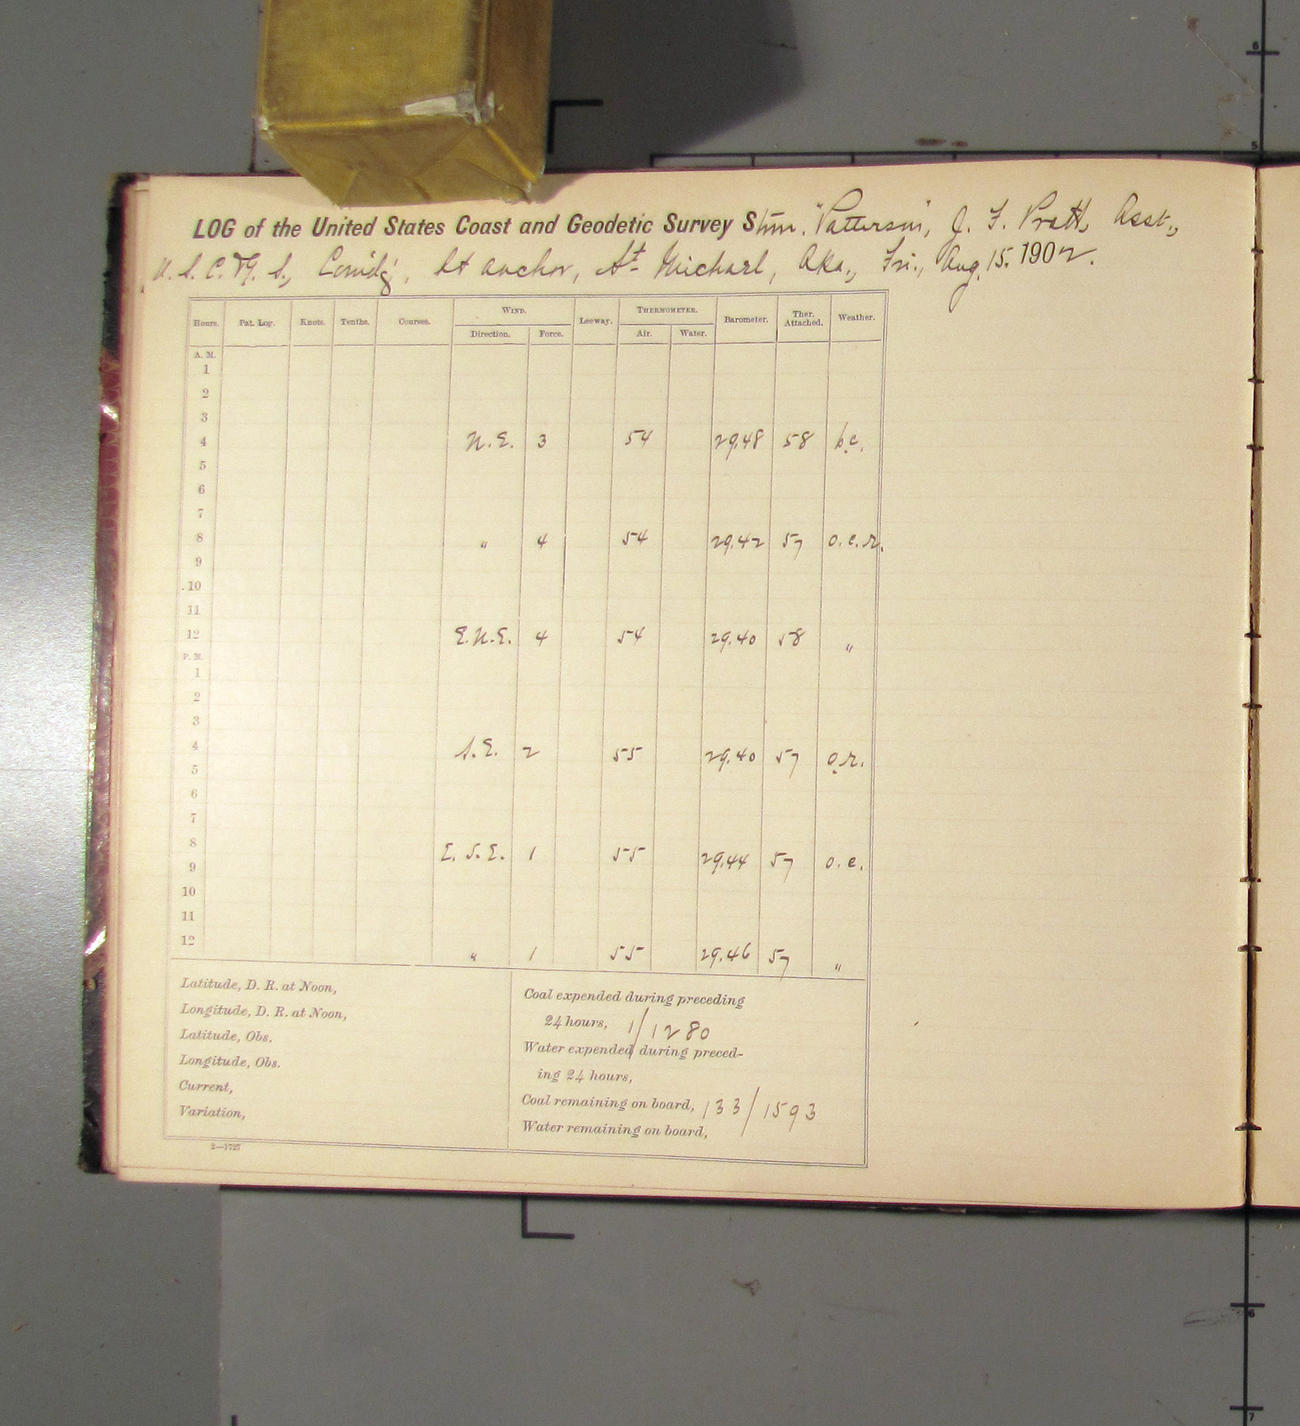 LOG of the United States Coast and Geodetic Survey Stmr. "Patterson", J. F. Pratt, Asst.,
U. S. C. & G. S., Comdg., At anchor, St. Michael, Aka., Fri., Aug. 15. 1902.
Hours. Pat. Log. Knots. Tenths. Courses. WIND. Leeway. THERMOMETER. Barometer. Ther. Attached. Weather.
Direction. Force. Air. Water.
A. M.
1
2
3
4 N.E. 3 54 29.48 58 b.c.
5
6
7
8 " 4 54 29.42 57 o.c.r.
9
10
11
12 E.N.E. 4 54 29.40 58 "
P. M.
1
2
3
4 S.E. 2 55 29.40 57 o.r.
5
6
7
8 E.S.E. 1 55 29.44 57 o.c.
9
10
11
12 " 1 55 29.46 57 "
Latitude, D. R. at Noon,
Longitude, D. R. at Noon,
Latitude, Obs.
Longitude, Obs.
Current,
Variation,
Coal expended during preceding
24 hours, 1/1280
Water expended during preced-
ing 24 hours,
Coal remaining on board, 133/1593
Water remaining on board,
2—1727
6
5
6
7